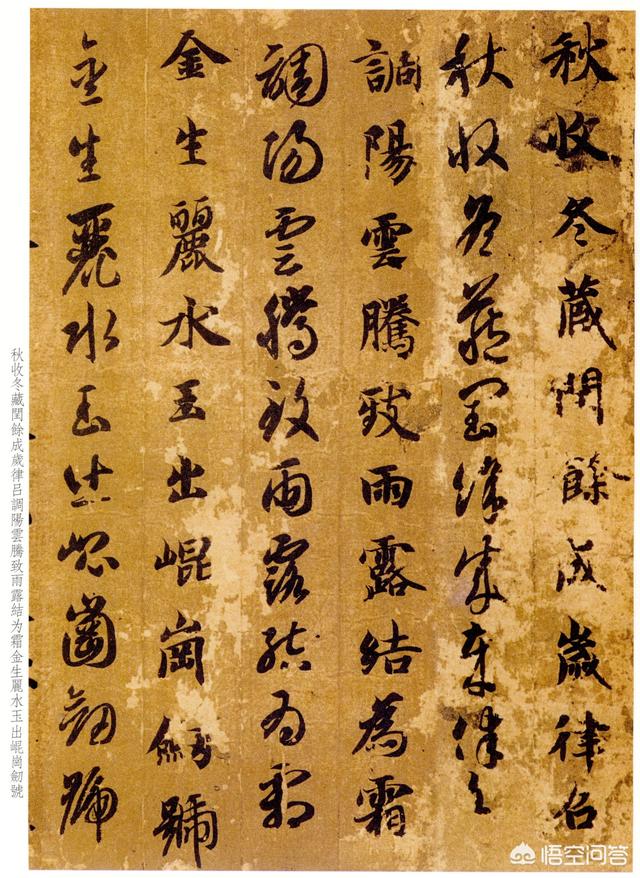 秋收冬藏閏餘成歲律召
秋收冬藏閏餘成歲律召
調陽雲騰致雨露結為霜
調陽雲騰致雨露結為霜
金生麗水玉出崐崗劒號
金生麗水玉出崐崗劒號
秋收冬藏閏餘成歲律呂調陽雲騰致雨露結为霜金生麗水玉出崐崗劒號
悟空问答